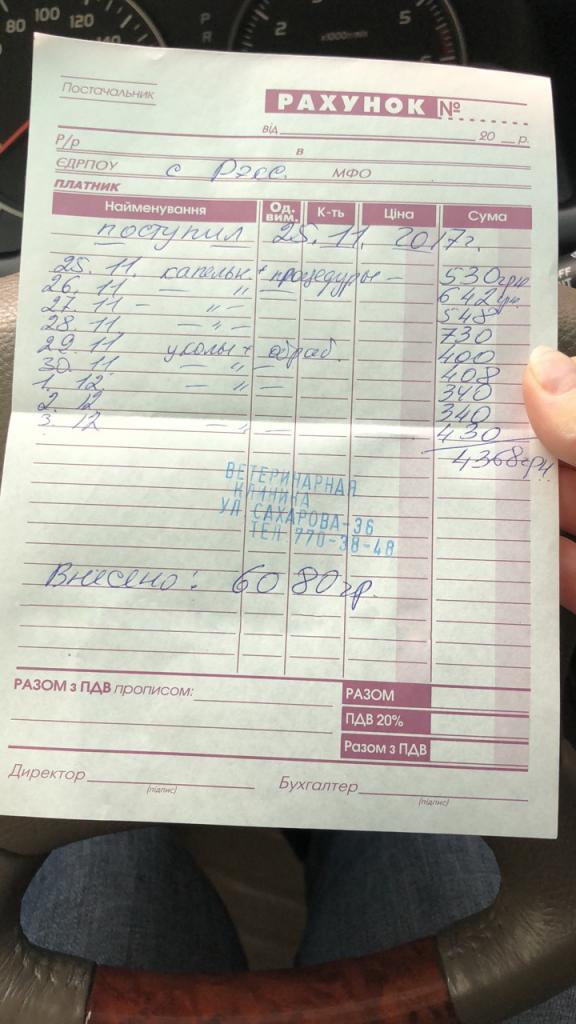 80 100 120
140
P
R
2
5
6
x1000r/min
OFF
Постачальник
РАХУНОК №
від 20 р.
Р/р в
ЄДРПОУ с МФО
ПЛАТНИК
Найменування Од. вим. К-ть Ціна Сума
поступил 25. 11. 2017г.
25. 11. капельн + процедуры – 530грн
26. 11. — " — 642грн
27. 11 – — " — 548
28. 11. — " — 730
29. 11 уколы + обраб. 400
30. 11 — " — 408
1. 12 — " — 340
2. 12 340
3. 12 — " — 430
4368грн.
ВЕТЕРИНАРНАЯ
КЛИНИКА
УЛ САХАРОВА-36
ТЕЛ 770-38-48
Внесено: 6080гр.
РАЗОМ з ПДВ прописом:
РАЗОМ
ПДВ 20%
Разом з ПДВ
Директор Бухгалтер
(підпис) (підпис)